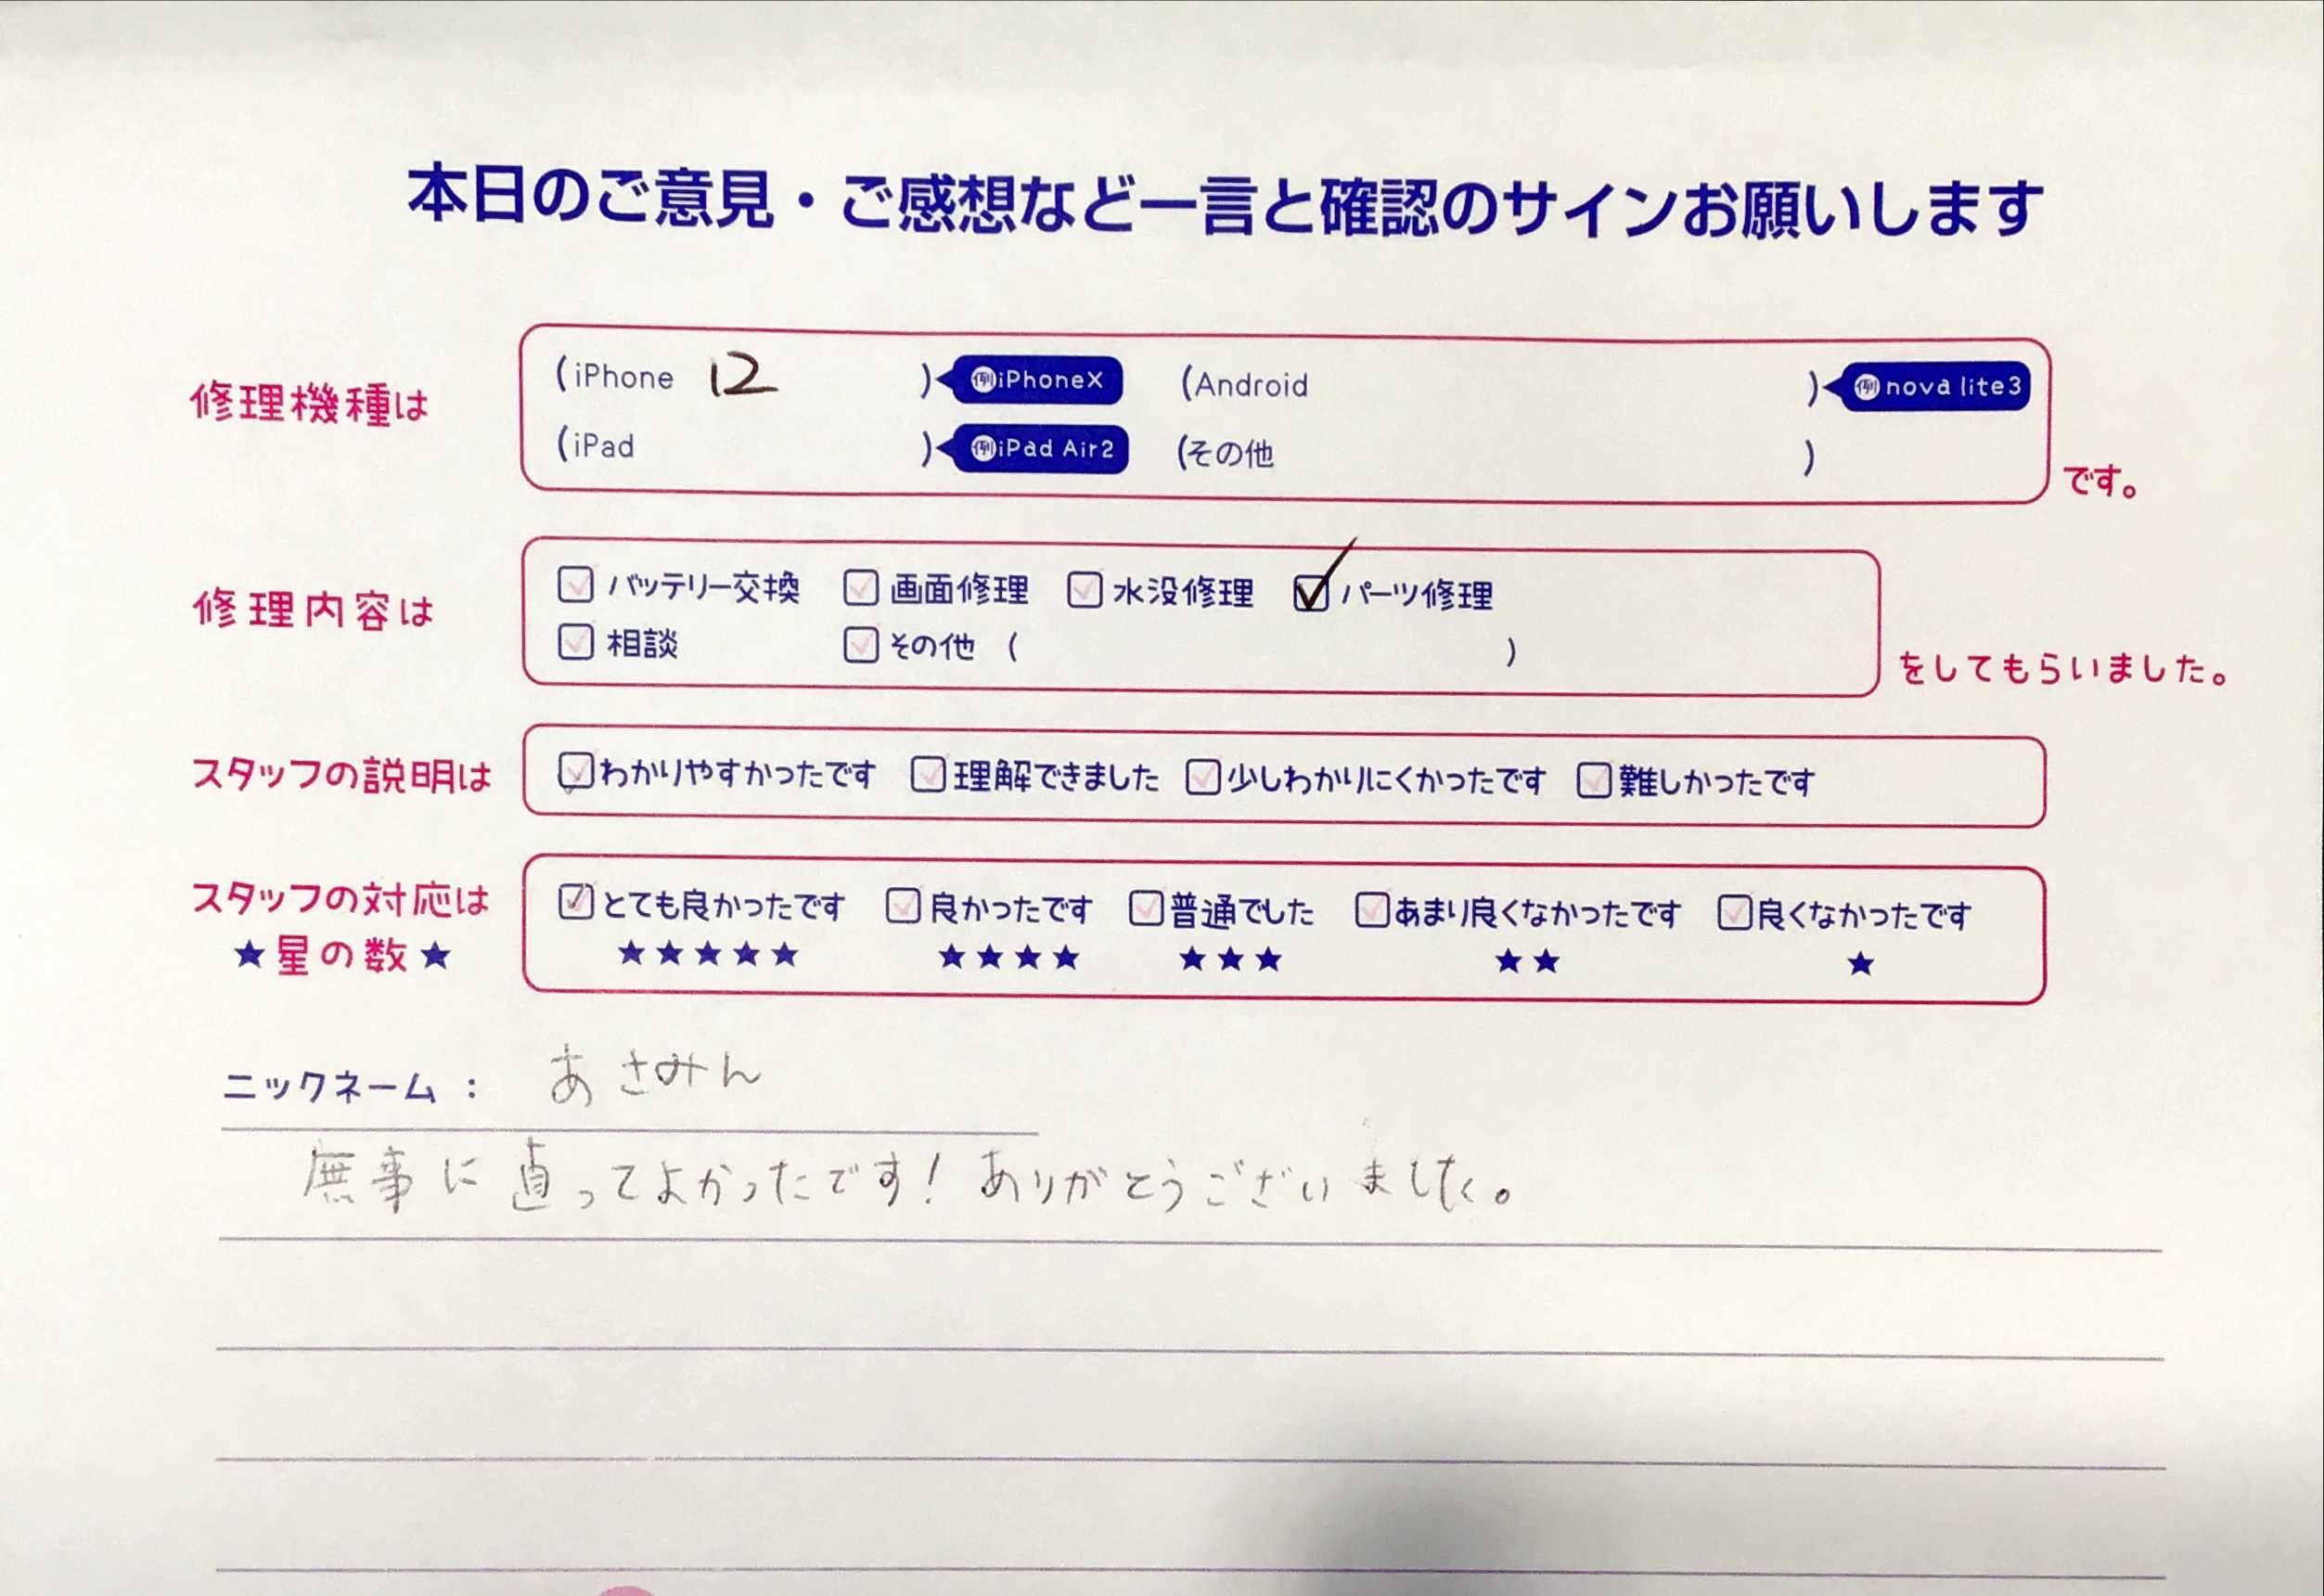 本日のご意見・ご感想など一言と確認のサインお願いします
修理機種は
(iPhone 12 ) 例iPhoneX (Android ) 例nova lite3
(iPad ) 例iPad Air2 (その他 )
です。
修理内容は
バッテリー交換 画面修理 水没修理 パーツ修理
相談 その他 ( )
をしてもらいました。
スタッフの説明は
わかりやすかったです 理解できました 少しわかりにくかったです 難しかったです
スタッフの対応は
★星の数★
とても良かったです 良かったです 普通でした あまり良くなかったです 良くなかったです
★★★★★ ★★★★ ★★★ ★★ ★
ニックネーム： あさみん
無事に直ってよかったです！ありがとうございました。